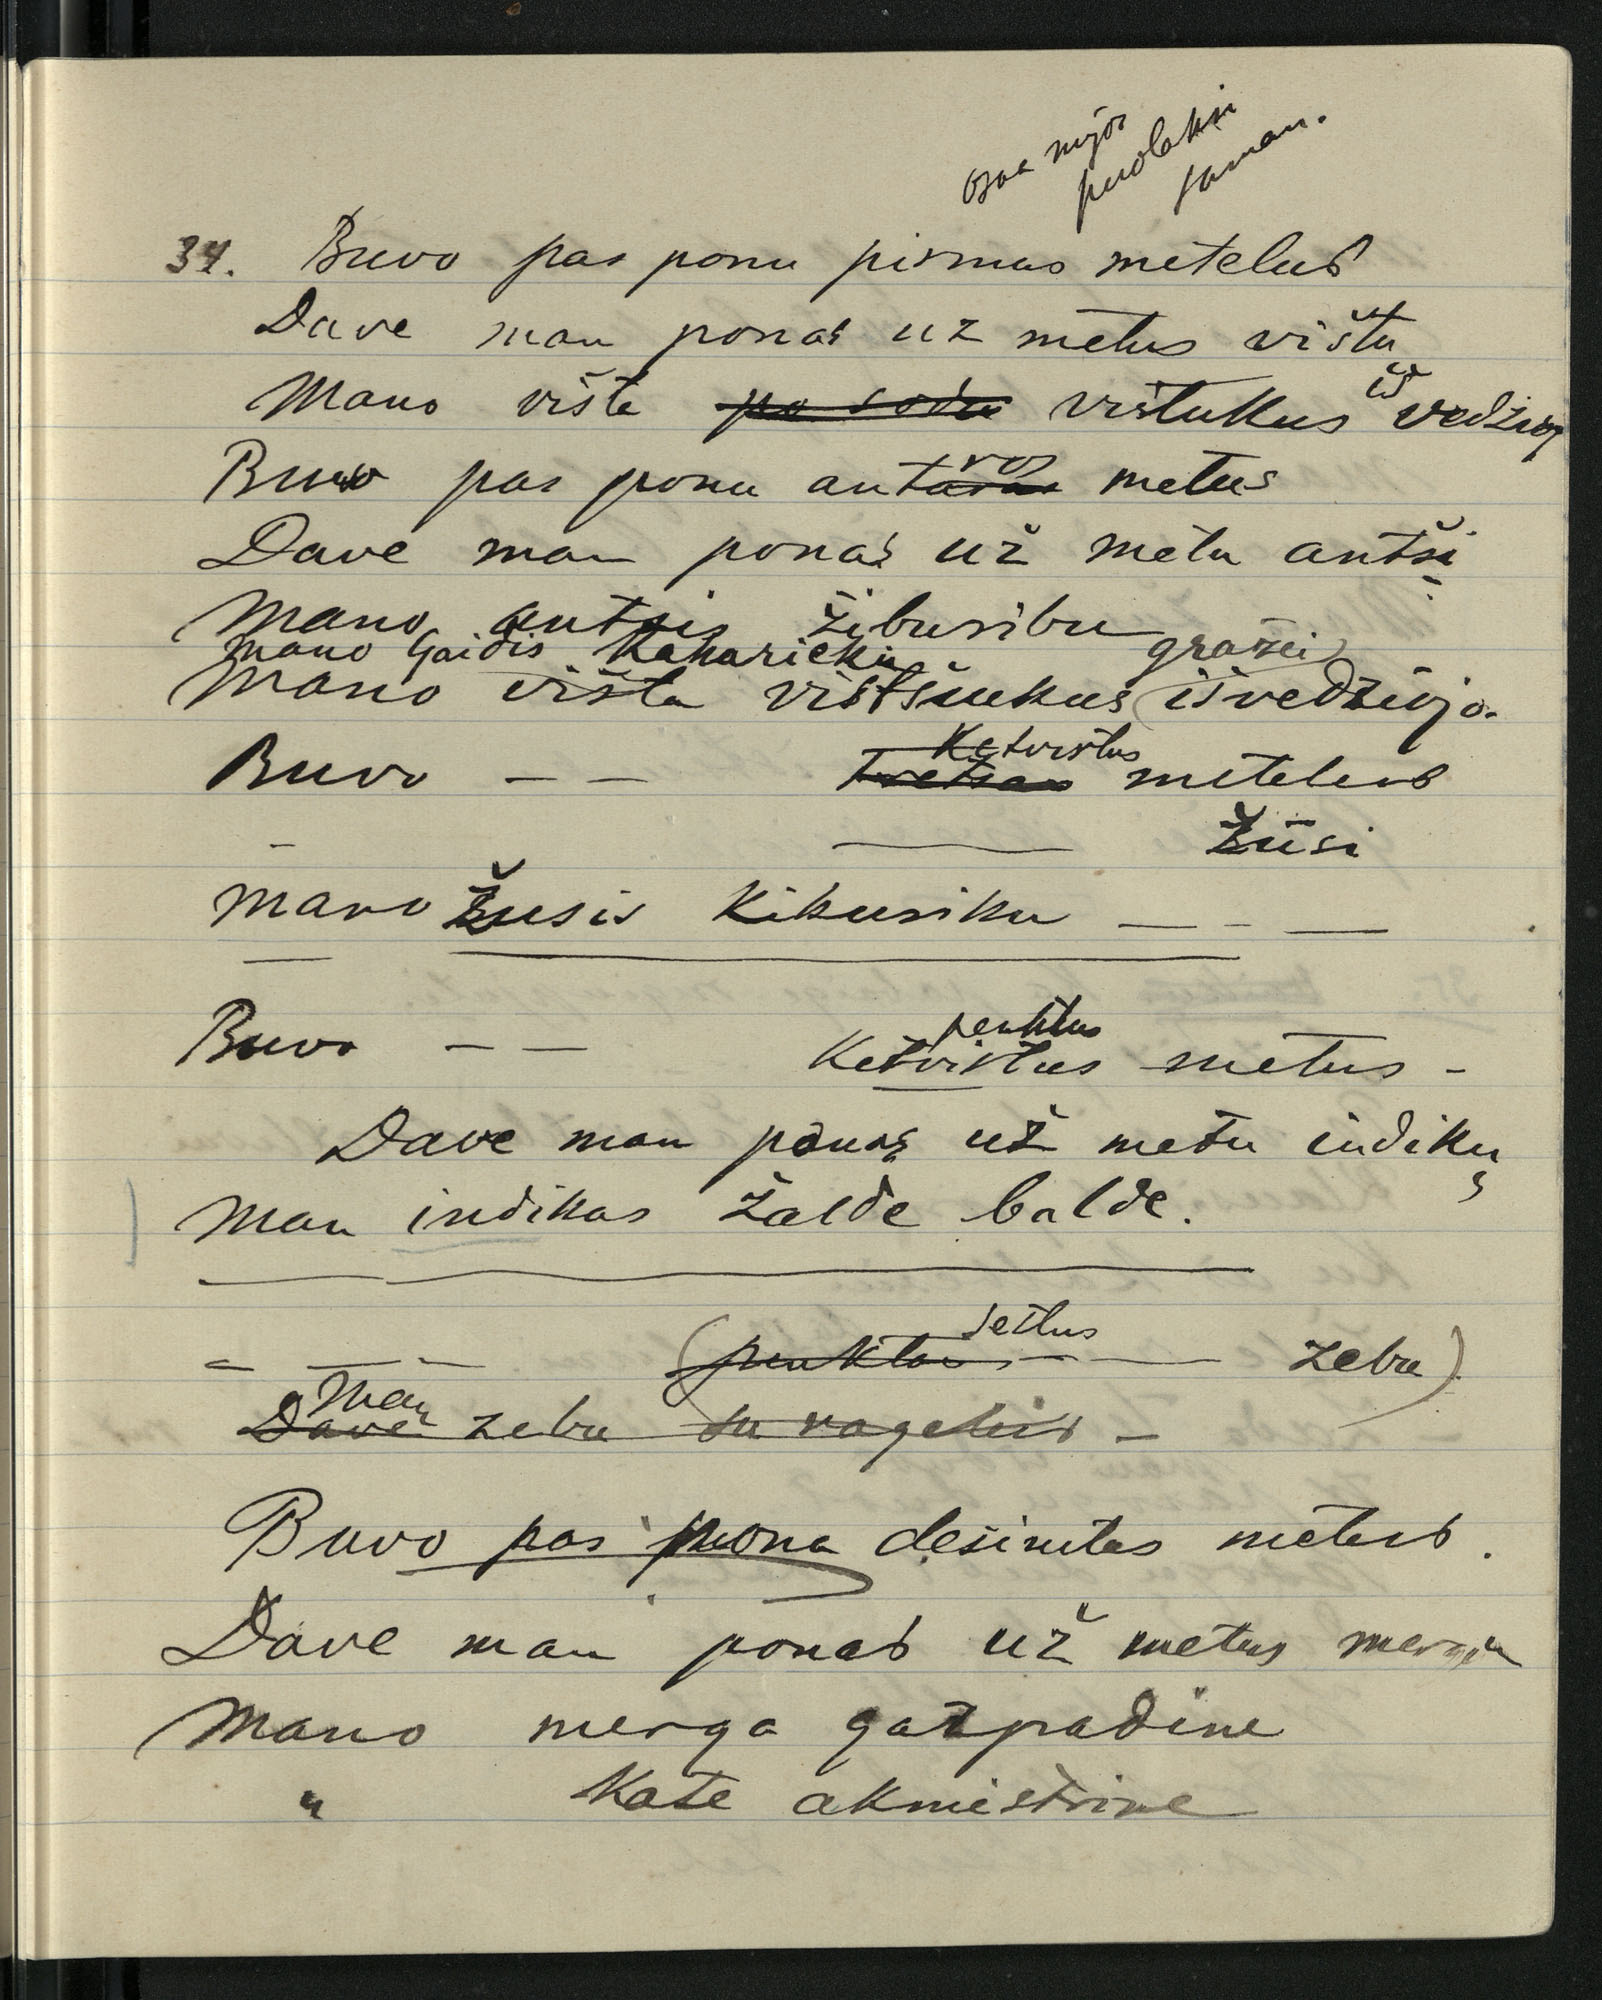 osa mijös
puoleksi
saman.
34. Buvo pas ponu pirmus metelus
Dave man ponas uz metus vištu
Mano višta po sodu vištukus iš vedžioj
Buvo pas ponu antaras ros metus
Dave man ponas už metu antši
Mano antsis žiburibu
mano Gaidis Kakarieku gražei
Mano višta vištšiukus (išvedžiojo.
Buvo — — Tretšas Ketvirtus metelus
— —— Žūsi
Mano Žusis Kikuriku — - —
Buvo — — penktus
Ketvirtus metus -
Dave man ponas už metu indiku
Man indikas žalde balde.
- — - (penktas sestus - — zebu)
Dave Man zebu su rageleis -
Buvo pas pona dešimtas metus.
Dave man ponas už metus mergu
Mano merga gazpadine
" Kate akmistrine